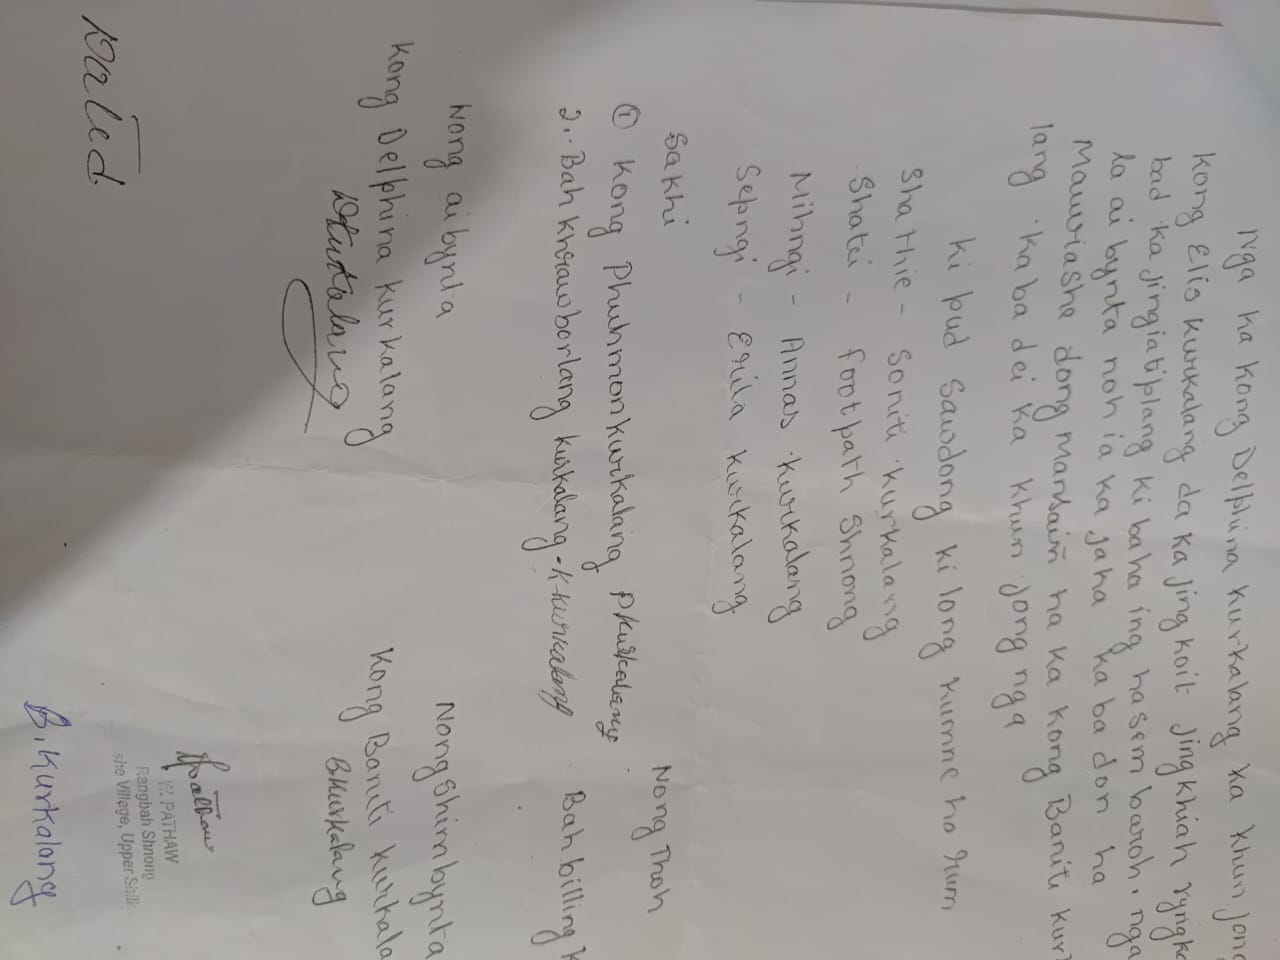 Nga ka Kong Delphina Kurkalang ka khun jong
Kong Elis Kurkalang da ka jingkoit jingkhiah
bad ka jingiatiplang ki baha ing hasem baroh, nga
la ai bynta noh ia ka jaka ka ba don ha
Mawriashe dong mansain ha ka kong Baniti
lang . ka ba dei ka khun jong nga
ki pud sawdong ki long kumne ho rum
Shathie - Soniti Kurkalang
Shatei - Footpath Shnong
Mihngi - Annas Kurkalang
Sepngi - Erila Kurkalang
Sakhi
① Kong Phuhmon Kurkalang PKurkalang
2. Bah Khrawborlang Kurkalang - K.Kurkalang
Nong Thoh
Bah billing
Nong ai bynta
Kong Delphina Kurkalang
DKurkalang
Nongshim bynta
Kong Baniti
BKurkalang
W. PATHAW
Rangbah Shnong
she Village, Upper
Dated
B. Kurkalang